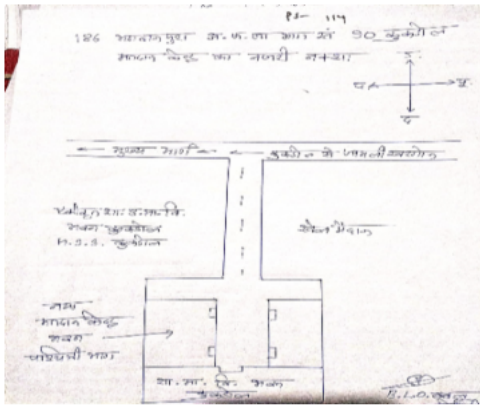 PS- 114
186 भगवानपुरा अ.ज.जा भाग सं 90 कुकडोल
मतदान केन्द्र का नजरी नक्शा
उ.
प
पू.
द
मुख्य मार्ग
कुकडोल से
एकीकृत शा.उ.मा.वि.
भवन कुकडोल
H.S.S. कुकडोल
खेल मैदान
मतदान केन्द्र
भवन
पश्चिमी भाग
शा. मा. वि. भवन
कुकडोल
B.L.O.